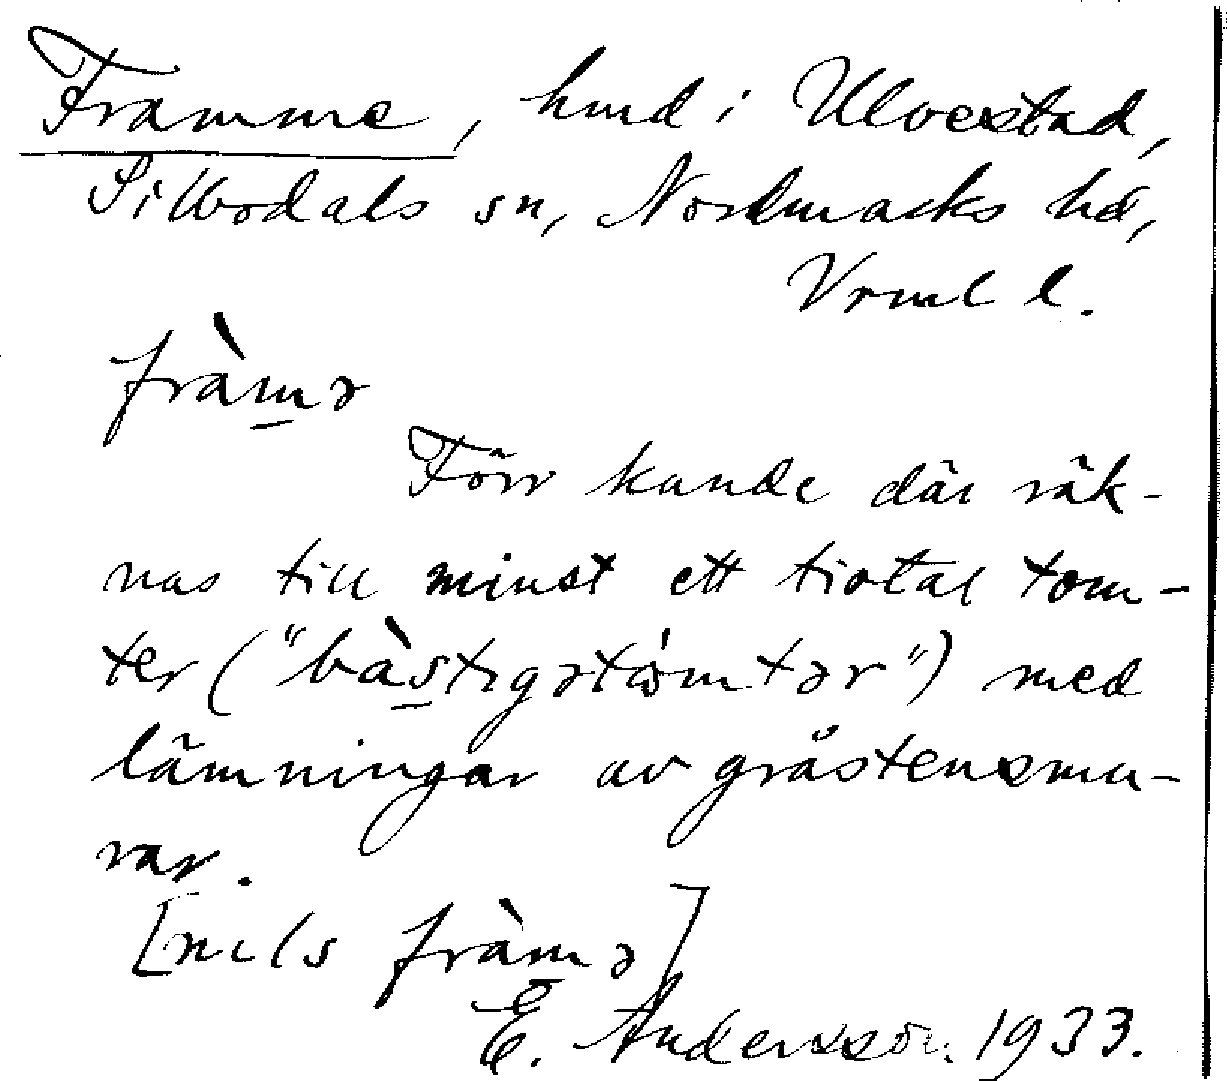 Framme, hmd i Ulvestad,
Silbodals sn, Nordmarks hd,
Vrml l.
fràm̲ə
Förr kunde där räk-
nas till minst ett tiotal tom-
ter ("bàs̲tɪgətömtər") med
lämningar av gråstensmu-
rar.
[nɪls fràm̲ə]
E. Andersson 1933.